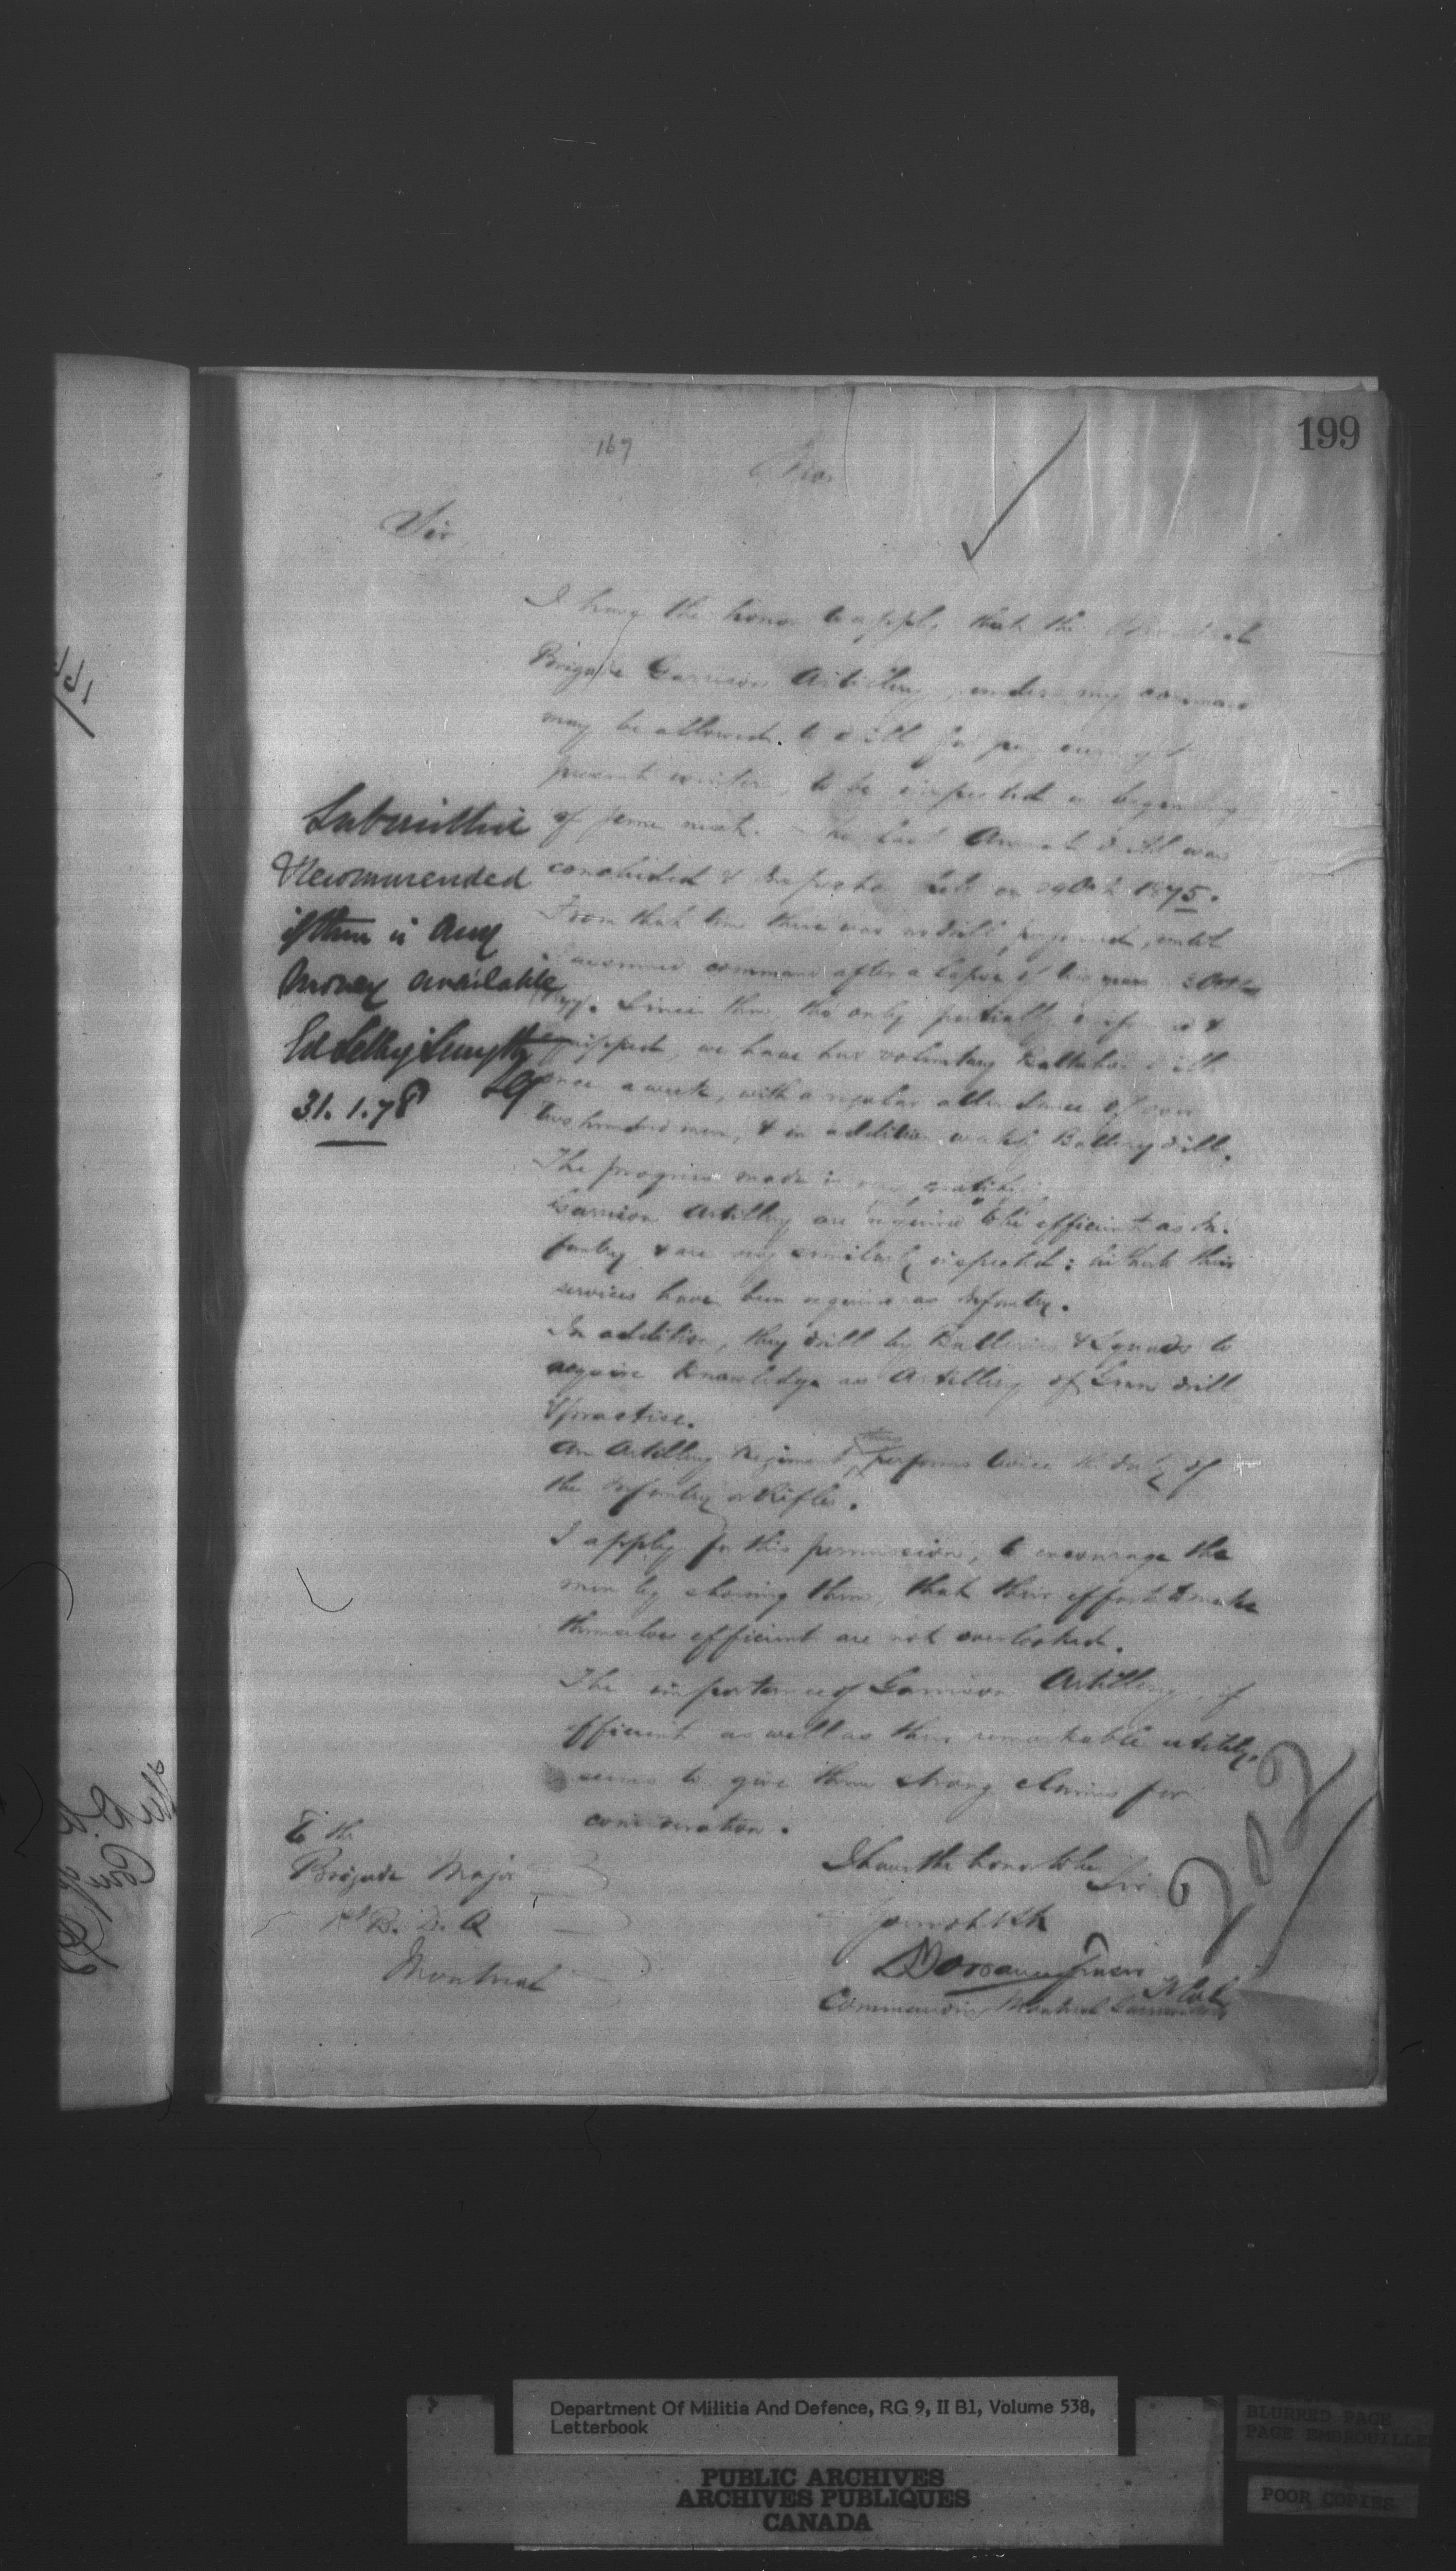 199
167
Sir
I have the honor to apply that the Montreal
Brigade Garrison Artillery, under my command
may be allowed to drill for pay during
present winter, to be inspected in beginning
of June next. The last Annual drill was
concluded & on 29 Oct 1875.
From that time there was no drill performed, until
I assumed command after a lapse of two years
77. Since then, tho only partially uniformed &
equipped, we have had voluntary Battalion drill
once a week, with a regular attendance of over
two hundred men, & in addition weekly Battery drill.
The progress made is very gratifying.
Garrison Artillery are required to be efficient as In-
fantry, & are similarly inspected: hitherto their
services have been required as Infantry.
In addition, they drill by Batteries & Squads to
acquire knowledge as Artillery of Gun drill
& practice.
An Artillery Regiment, thus performs twice the duty of
the Infantry or Rifles.
I apply for this permission, to encourage the
men by showing them, that their efforts to make
themselves efficient are not overlooked.
The importance of Garrison Artillery, if
efficient as well as their remarkable utility,
seems to give them strong claims for
consideration.
I have the honor to be
Sir
Your ob. Svt
Fraser
Lt Col
Commanding Montreal
To the
Brigade Major
B. D. Q
Montreal
Submitted
Recommended
if there is any
money available
Ed Selby Smyth
LG
31.1.78
202
Department Of Militia And Defence, RG 9, II B1, Volume 538,
Letterbook
PUBLIC ARCHIVES
ARCHIVES PUBLIQUES
CANADA
BLURRED PAGE
PAGE EMBROUILLE
POOR COPIES